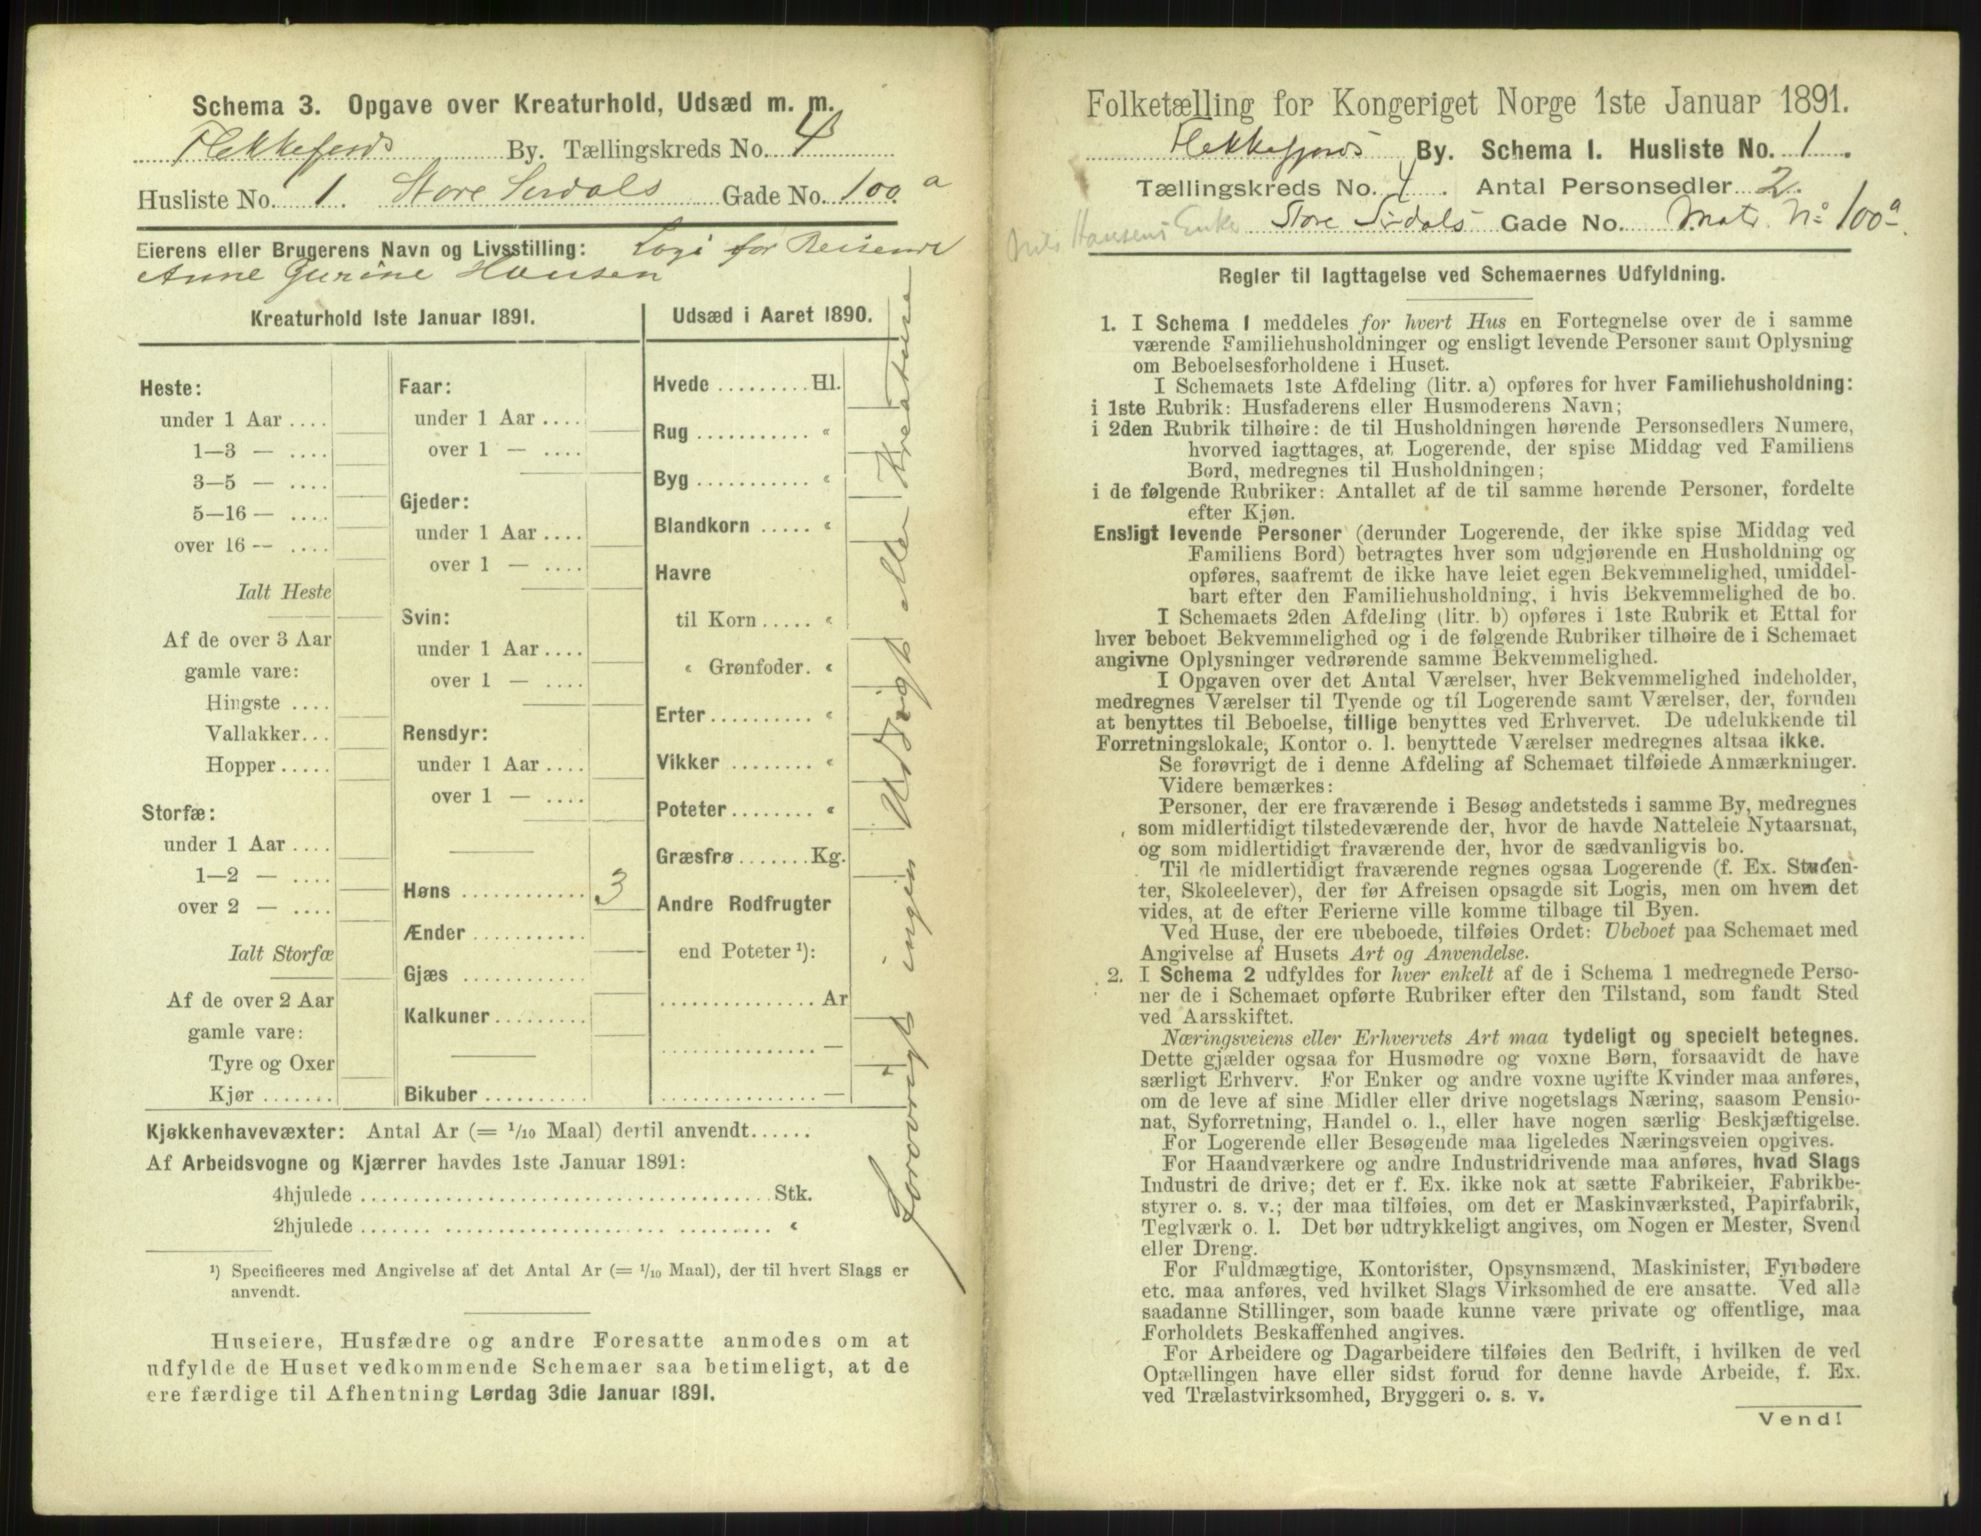 Schema 3. Opgave over Kreaturhold, Udsæd m. m.
Flekkefjords By. Tællingskreds No. 4
Husliste No. 1. Store Sirdals Gade No. 100 a
Eierens eller Brugerens Navn og Livsstilling: Logi for Reisende
Anne Gurine Hansen
Kreaturhold 1ste Januar 1891.
Heste:
under 1 Aar ....
1—3 — ....
3—5 — ....
5—16 — ....
over 16 — ....
Ialt Heste
Af de over 3 Aar
gamle vare:
Hingste ....
Vallakker...
Hopper .....
Storfæ:
under 1 Aar ....
1—2 — ....
over 2 — ....
Ialt Storfæ
Af de over 2 Aar
gamle vare:
Tyre og Oxer
Kjør .......
Faar:
under 1 Aar ....
over 1 — ....
Gjeder:
under 1 Aar ....
over 1 — ....
Svin:
under 1 Aar ....
over 1 — ....
Rensdyr:
under 1 Aar ....
over 1 — ....
Høns ............ 3
Ænder ...........
Gjæs ............
Kalkuner.........
Bikuber ..........
Udsæd i Aaret 1890.
Hvede ......... Hl.
Rug ........... "
Byg ........... "
Blandkorn ..... "
Havre
til Korn ..... "
" Grønfoder. "
Erter.......... "
Vikker ........ "
Poteter........ "
Græsfrø ....... Kg.
Andre Rodfrugter
end Poteter ¹):
............... Ar
............... —
............... —
Forøvrigt ingen Udsigt eller Kreature
Kjøkkenhavevæxter: Antal Ar (= 1/10 Maal) dertil anvendt......
Af Arbeidsvogne og Kjærrer havdes 1ste Januar 1891:
4hjulede ..................................... Stk.
2hjulede ..................................... "
¹) Specificeres med Angivelse af det Antal Ar (= 1/10 Maal), der til hvert Slags er
anvendt.
Huseiere, Husfædre og andre Foresatte anmodes om at
udfylde de Huset vedkommende Schemaer saa betimeligt, at de
ere færdige til Afhentning Lørdag 3die Januar 1891.
Folketælling for Kongeriget Norge 1ste Januar 1891.
Flekkefjords By. Schema 1. Husliste No. 1.
Tællingskreds No. 4. Antal Personsedler 2.
Nils Hansens Enke Store Sirdals Gade No. Matr. No 100 a
Regler til Iagttagelse ved Schemaernes Udfyldning.
1. I Schema 1 meddeles for hvert Hus en Fortegnelse over de i samme
værende Familiehusholdninger og ensligt levende Personer samt Oplysning
om Beboelsesforholdene i Huset.
I Schemaets 1ste Afdeling (litr. a) opføres for hver Familiehusholdning:
i 1ste Rubrik: Husfaderens eller Husmoderens Navn;
i 2den Rubrik tilhøire: de til Husholdningen hørende Personsedlers Numere,
hvorved iagttages, at Logerende, der spise Middag ved Familiens
Bord, medregnes til Husholdningen;
i de følgende Rubriker: Antallet af de til samme hørende Personer, fordelte
efter Kjøn.
Ensligt levende Personer (derunder Logerende, der ikke spise Middag ved
Familiens Bord) betragtes hver som udgjørende en Husholdning og
opføres, saafremt de ikke have leiet egen Bekvemmelighed, umiddel-
bart efter den Familiehusholdning, i hvis Bekvemmelighed de bo.
I Schemaets 2den Afdeling (litr. b) opføres i 1ste Rubrik et Ettal for
hver beboet Bekvemmelighed og i de følgende Rubriker tilhøire de i Schemaet
angivne Oplysninger vedrørende samme Bekvemmelighed.
I Opgaven over det Antal Værelser, hver Bekvemmelighed indeholder,
medregnes Værelser til Tyende og til Logerende samt Værelser, der, foruden
at benyttes til Beboelse, tillige benyttes ved Erhvervet. De udelukkende til
Forretningslokale, Kontor o. l. benyttede Værelser medregnes altsaa ikke.
Se forøvrigt de i denne Afdeling af Schemaet tilføiede Anmærkninger.
Videre bemærkes:
Personer, der ere fraværende i Besøg andetsteds i samme By, medregnes
som midlertidigt tilstedeværende der, hvor de havde Natteleie Nytaarsnat,
og som midlertidigt fraværende der, hvor de sædvanligvis bo.
Til de midlertidigt fraværende regnes ogsaa Logerende (f. Ex. Studen-
ter, Skoleelever), der før Afreisen opsagde sit Logis, men om hvem det
vides, at de efter Ferierne ville komme tilbage til Byen.
Ved Huse, der ere ubeboede, tilføies Ordet: Ubeboet paa Schemaet med
Angivelse af Husets Art og Anvendelse.
2. I Schema 2 udfyldes for hver enkelt af de i Schema 1 medregnede Perso-
ner de i Schemaet opførte Rubriker efter den Tilstand, som fandt Sted
ved Aarsskiftet.
Næringsveiens eller Erhvervets Art maa tydeligt og specielt betegnes.
Dette gjælder ogsaa for Husmødre og voxne Børn, forsaavidt de have
særligt Erhverv. For Enker og andre voxne ugifte Kvinder maa anføres,
om de leve af sine Midler eller drive nogetslags Næring, saasom Pensio-
nat, Syforretning, Handel o. l., eller have nogen særlig Beskjæftigelse.
For Logerende eller Besøgende maa ligeledes Næringsveien opgives.
For Haandværkere og andre Industridrivende maa anføres, hvad Slags
Industri de drive; det er f. Ex. ikke nok at sætte Fabrikeier, Fabrikbe-
styrer o. s. v.; der maa tilføies, om det er Maskinværksted, Papirfabrik,
Teglværk o. l. Det bør udtrykkeligt angives, om Nogen er Mester, Svend
eller Dreng.
For Fuldmægtige, Kontorister, Opsynsmænd, Maskinister, Fyrbødere
etc. maa anføres, ved hvilket Slags Virksomhed de ere ansatte. Ved alle
saadanne Stillinger, som baade kunne være private og offentlige, maa
Forholdets Beskaffenhed angives.
For Arbeidere og Dagarbeidere tilføies den Bedrift, i hvilken de ved
Optællingen have eller sidst forud for denne havde Arbeide, f. Ex.
ved Trælastvirksomhed, Bryggeri o. s. v.
Vend!